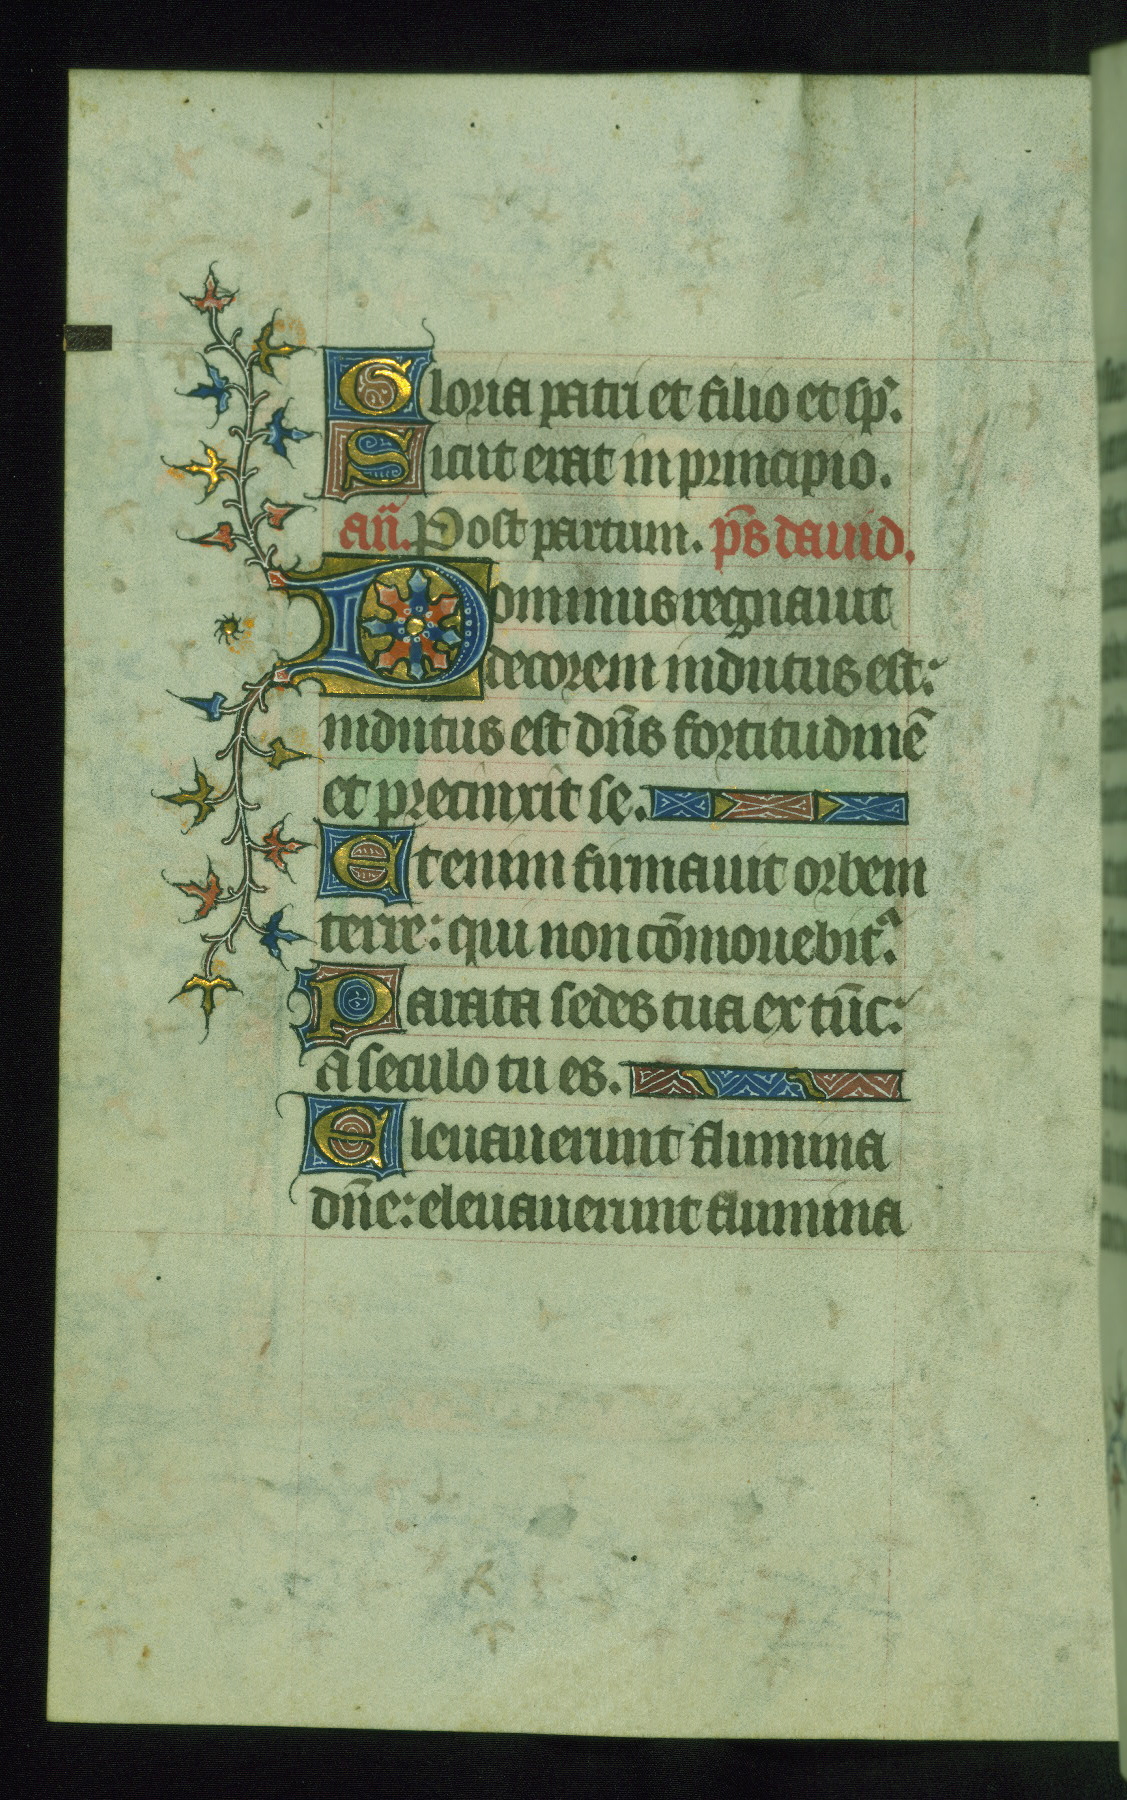 Gloria patri et filio et sp̄.
Sicut erat in principio.
an̄. Post partum. p̄s dauid.
Dominus regnauit
decorem indutus est:
indutus est dn̄s fortitudinē
et precinxit se.
Etenim firmauit orbem
terre: qui non cōmouebit᷑.
Parata sedes tua ex tūc:
a seculo tu es.
Eleuauerunt flumina
dn̄e: eleuauerunt flumina